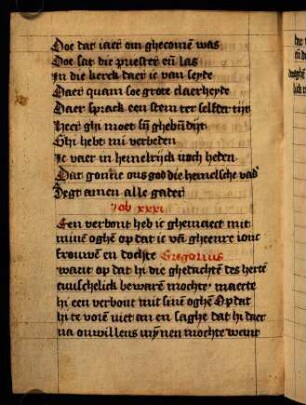 Doe dat iaer om ghecomen was
Doe sat die priester eñ las
In die kerck daer ic van seyde
Daer quam soe grote claerheyde
Daer sprack een stem ter selfter tijt
Heer ghi moet sijn ghebñdijt
Ghi hebt mi verbeden
Ic vaer in hemelrijck noch heden
Dat gonne ons god die hemelsche vad'
Segt amen alle gader
Job xxxi
Een verbont heb ic ghemaect mit
minē oghē op dat ic vā gheenre ionc
frouwē en dochte Gregorius
want op dat hi die ghedachtē des hertē
cuuschelick bewarē mochte maecte
hi een verbont mit sinē oghē Op dat
hi te vorē niet an en saghe dat hi daer
na onwillens mynnen mochte want